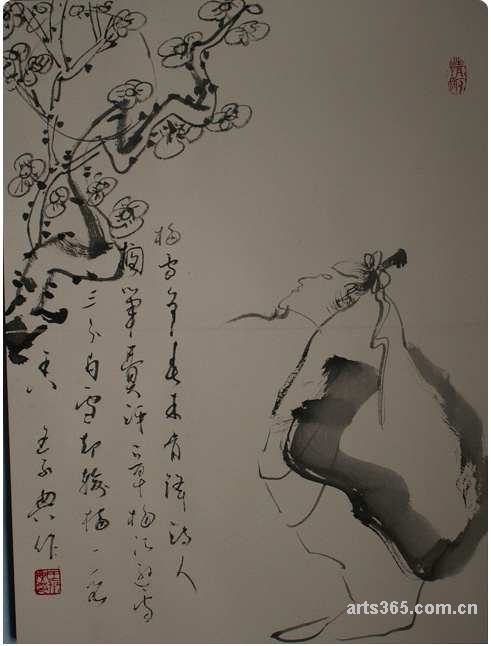 梅雪争春未肯降骚人
阁筆費评章梅须逊雪
三分白雪却输梅一段
香
王
典作
arts365.com.cn